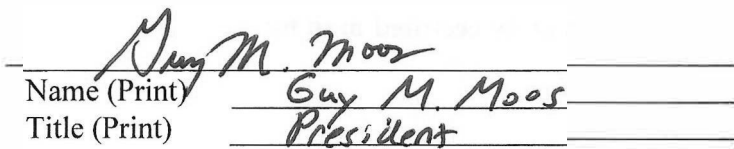 Guy M. Moos
Name (Print) Guy M. Moos
Title (Print) President